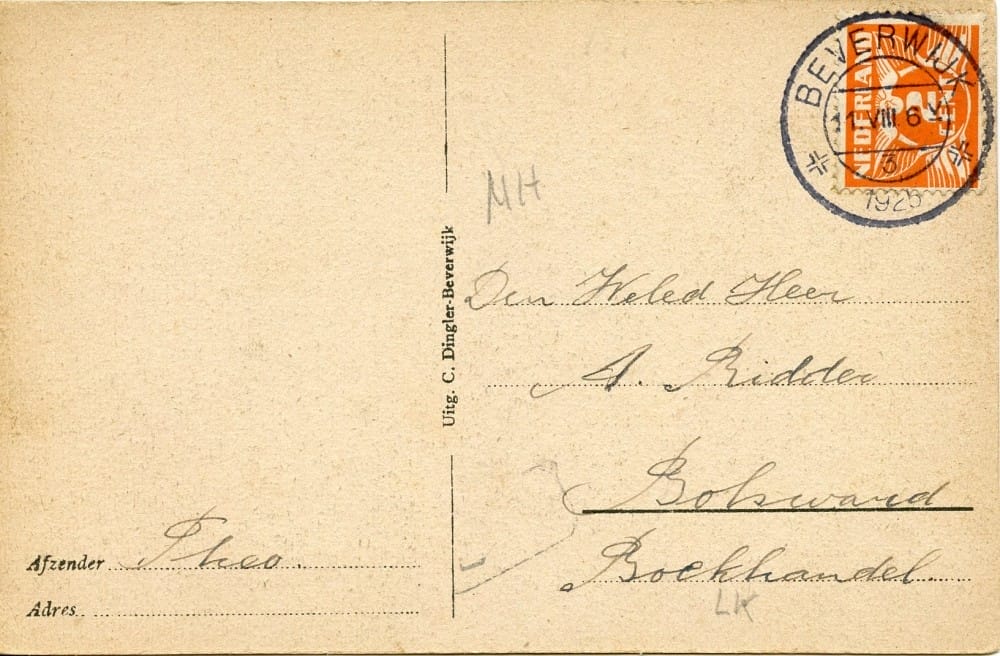 BEVERWIJK
1 VIII 6
3
1925
NEDERLAND
2
CENT
MH
Uitg. C. Dingler-Beverwijk
Den Weled Heer
A. Ridder
Bolsward
Boekhandel.
LK
Afzender Theo.
Adres